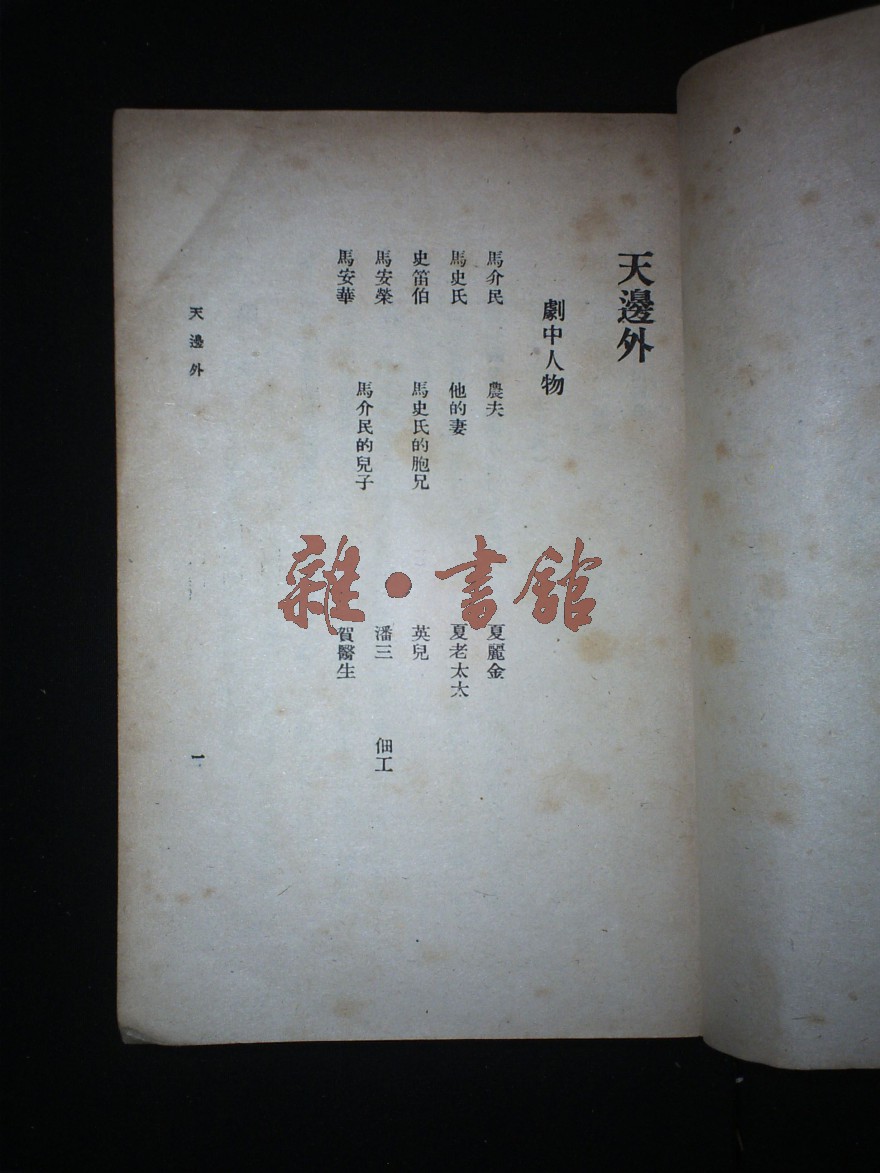 天邊外
劇中人物
馬介民 農夫
馬史氏 他的妻
史笛伯 馬史氏的胞兄
馬安榮
馬安華
馬介民的兒子
夏麗金
夏老太太
英兒
潘三 佃工
賀醫生
天邊外
一
雜·書館